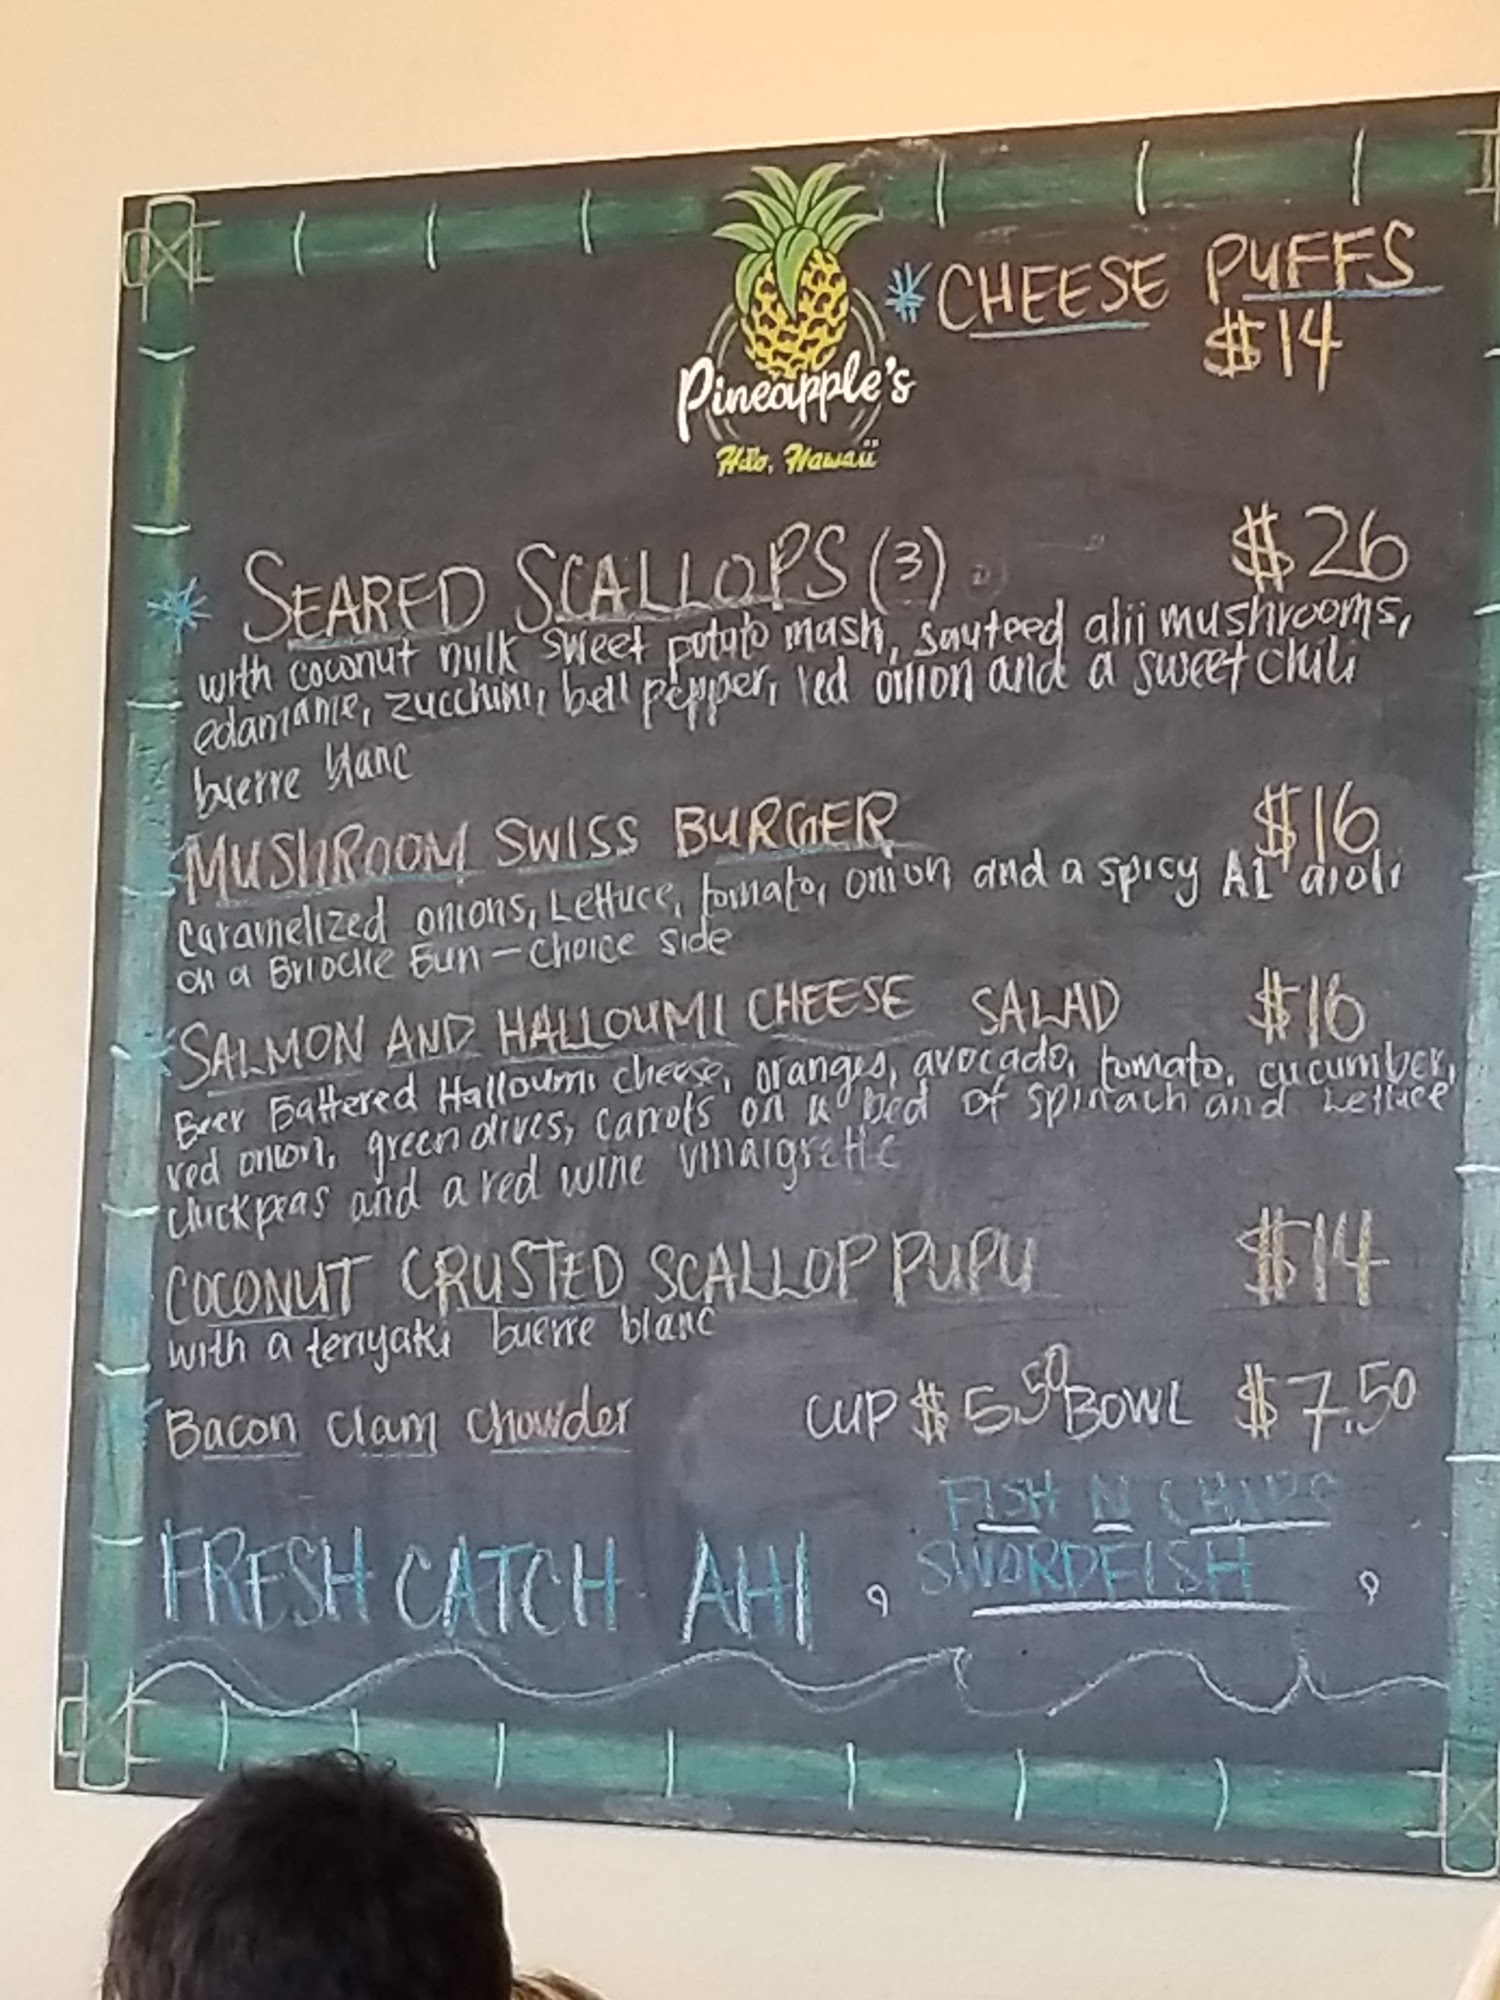 * CHEESE PUFFS
$14
Pineapple's
Hilo, Hawaii
* SEARED SCALLOPS (3) $26
with coconut milk sweet potato mash, sauteed alii mushrooms,
edamame, zucchini, bell pepper, red onion and a sweet chili
buerre blanc
MUSHROOM SWISS BURGER $16
caramelized onions, Lettuce, tomato, onion and a spicy A1 aioli
on a Brioche Bun - choice side
SALMON AND HALLOUMI CHEESE SALAD $16
Beer Battered Halloumi cheese, oranges, avocado, tomato, cucumber,
red onion, green olives, carrots on a bed of spinach and Lettuce
chickpeas and a red wine vinaigrette
COCONUT CRUSTED SCALLOP PUPU $14
with a teriyaki buerre blanc
Bacon Clam Chowder CUP $5.50 BOWL $7.50
FISH N CHIPS
FRESH CATCH AHI , SWORDFISH ,